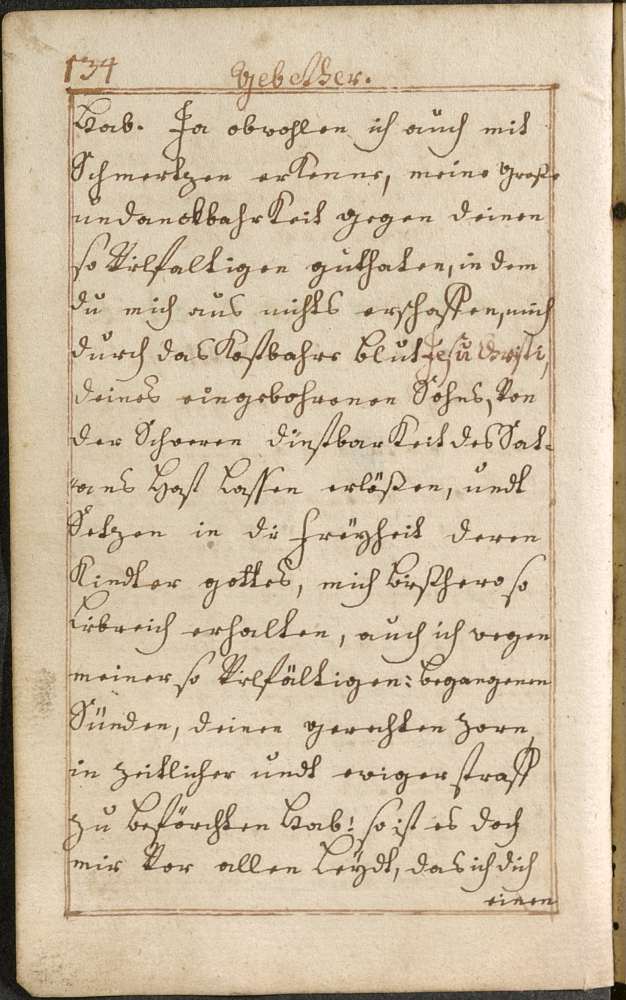 134 Gebether.
Hab. Ja obwohlen ich auch mit
Schmertzen erkenne, meine große
undanckbahrkeit gegen deinen
so Vilfaltigen guthaten, in dem
du mich aus nichts erschaffen, mich
durch das Kostbahre blut Jesu Christi,
deines eingebohrenen Sohns, Von
der Schweren dinstbarkeit des Sat-
ans Hast Lassen erlößen, undt
Setzen in di Freÿheit deren
Kindter gottes, mich bißhero so
Libreich erhalten, auch ich wegen
meiner so Vilfältigen: begangenen
Sünden, deinen gerechten Zorn,
in Zeitlicher undt ewiger straff
zu beförchten Hab! so ist es doch
mir Vor allen Leÿdt, das ich dich
einen